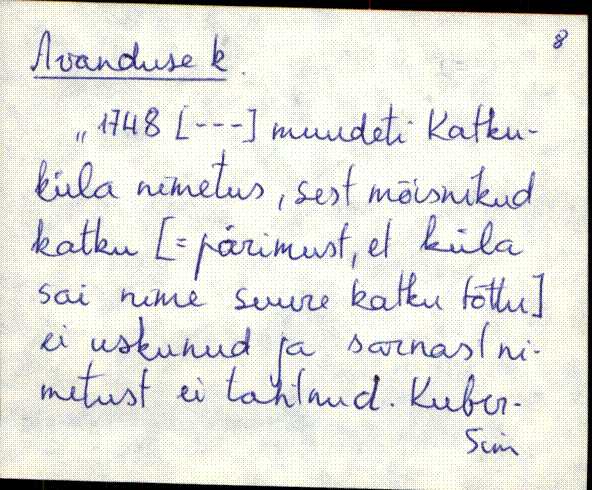 8
Avanduse k.
„1748 [---] muudeti Katku-
küla nimetus, sest mõisnikud
katku [= pärimust, et küla
sai nime suure katku tõttu]
ei uskunud ja sarnast ni-
metust ei tahtnud. Kuber-
Sim